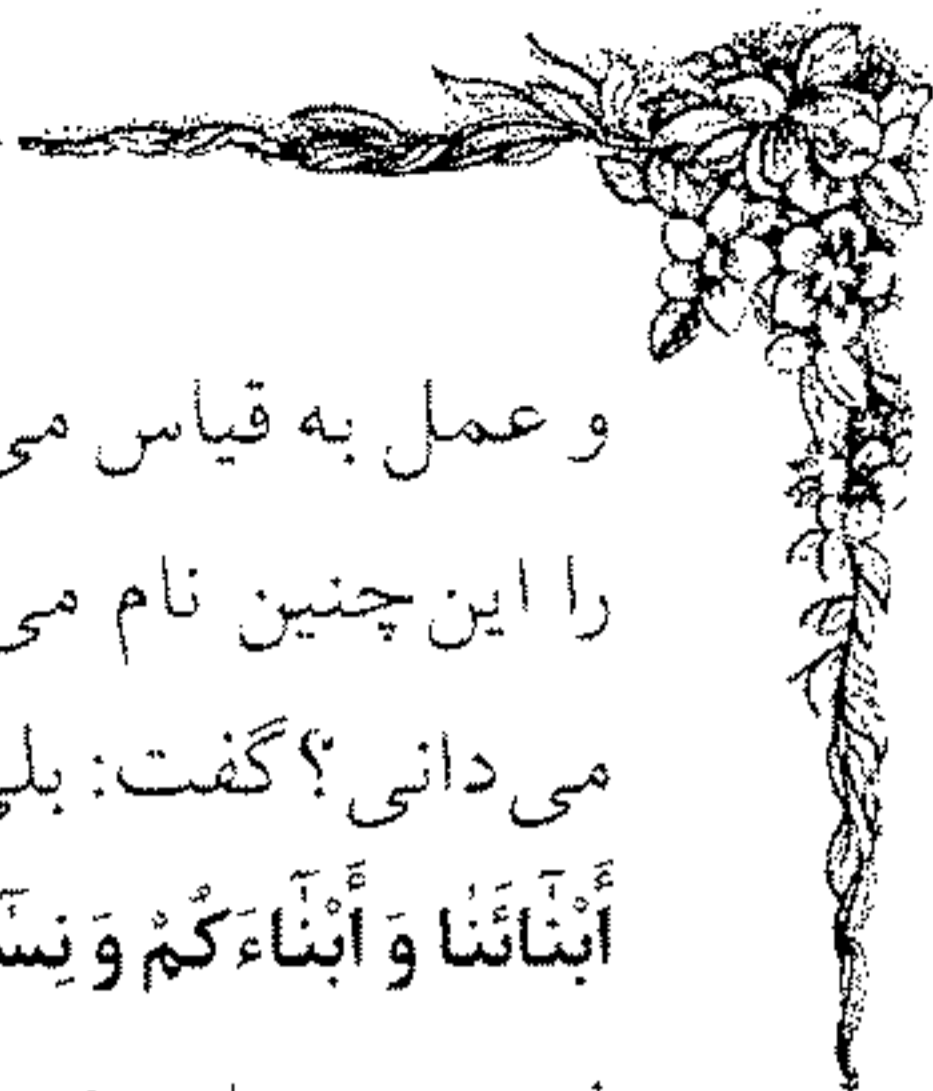 و عمل به قیاس می
را این چنین نام می
می دانی؟ گفت: بلی
أَبْنَائَنَا وَ أَبْنَاءَكُمْ وَ نِسَ